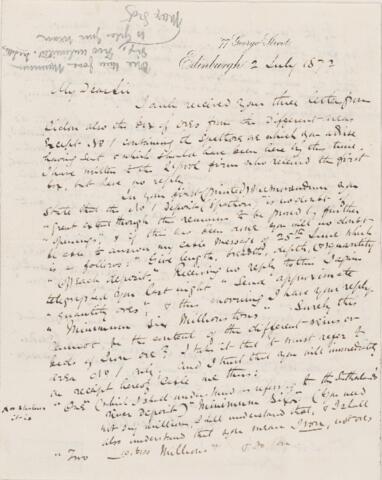 77 George Street
Edinburgh 2 July 1872
My Dear Sir
I duly received your three letters from
also the Box of Ores from the different areas
except No 1 containing the Spathose ore which you advise
having sent & which should have been here by this time.
I have written to the L'pool firm who received the first
box, but have no reply.
In your first printed Memorandum you
state that the No 1 deposit, Spathose, "is no doubt of
"great extent though the remains to be proved by further
"openings", & if this has been done you will no doubt
be able to answer my cable message of 25th June which
is as follows: "Give length, breadth, depth, & quantity
"of each deposit." Receiving no reply to this I again
telegraphed you last night "Send approximate
"quantity ores", & this morning I have your reply
"Minimum Six Millions tons". Surely this
cannot be the content of the different veins or
beds of Iron ore? I take it that it must refer to
area No 1 only; and I think that you will immediately
on receipt hereof Cable me thus:
"One" (which I shall understand as refers to the Sutherlands
River deposit) "Minimum Six" (you need
not say million, I shall understand that, & I shall
also understand that you mean Iron, not ores
"Two Millions" & so on